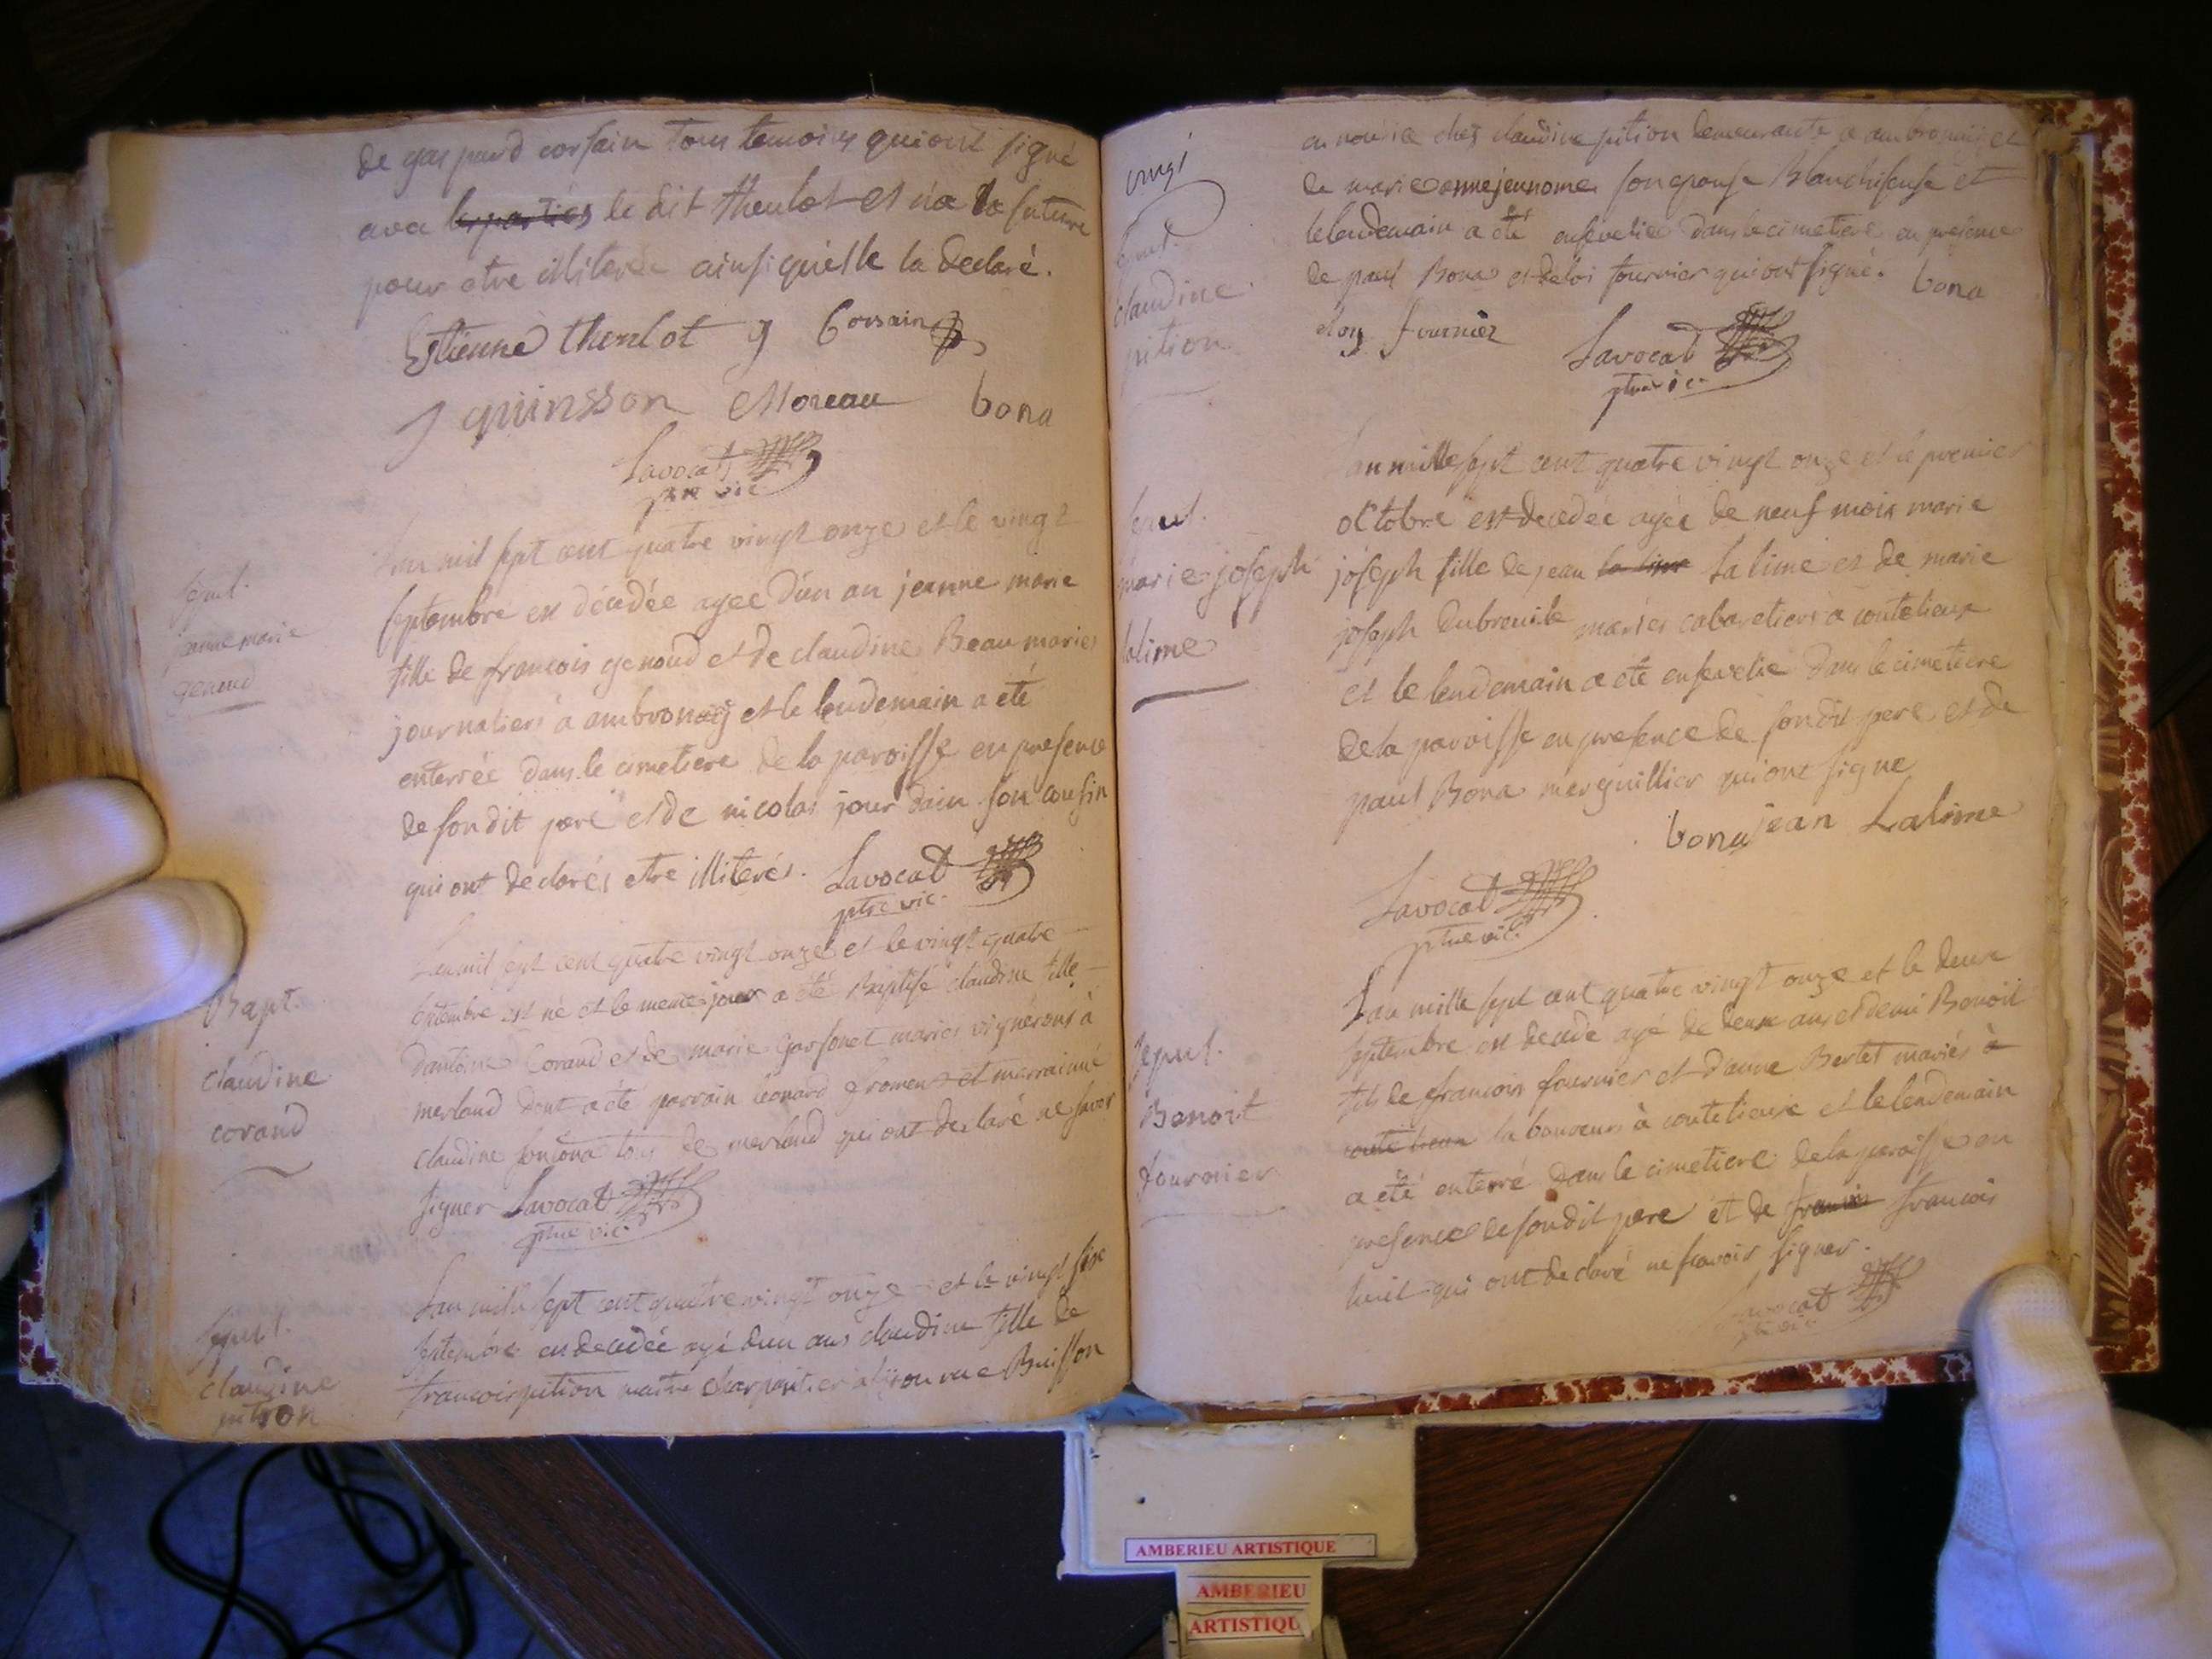 de gaspard corsain tous temoins qui ont signé
avec les parties le dit theulot et n'a la future
pour etre illiterée ainsi qu'elle la declaré.
Estienne theulot g Corsain
J quinsson Moreau bona
Lavocat
ptre vic
sepul.
jeanne marie
genoud
L'an mil sept cent quatre vingt onze et le vingt
septembre est décédée agée d'un an jeanne marie
fille de francois genoud et de claudine Beau mariés
journaliers a ambronay et le lendemain a été
enterrée dans le cimetiere de la paroisse en presence
de son dit pere et de nicolas jourdain son cousin
qui ont declarés etre illiterés. Lavocat
ptre vic.
Bapt.
claudine
corand
L'an mil sept cent quatre vingt onze et le vingt quatre
septembre est né et le meme jour a été Baptisé claudine fille
d'antoine Corand et de marie garsonet mariés vignerons à
merland dont a été parrain leonard froment et marrainne
claudine fontona tous de merland qui ont declaré ne savoir
signer Lavocat
ptre vic.
sepul.
claudine
pition
L'an mille sept cent quatre vingt onze et le vingt six
septembre est decedée agé d'un ans claudine fille de
francois pition maitre charpentier a lyon rue Buisson
vingt
sepul.
claudine
pition
en nourice chez claudine pition demeurante a ambronay et
de marie anne jeunome son epouse Blanchiseuse et
le lendemain a été ensevelie dans le cimetiere en presence
de paul Bona et d'eloi fournier qui ont signé. bona
eloy fournier Lavocat
ptre vic.
sepul.
marie joseph
lalime
L'an mille sept cent quatre vingt onze et le premier
octobre est decedée agée de neuf mois marie
joseph fille de jean la lime Lalime et de marie
joseph dubreuile mariés cabaretiers a coutelieux
et le lendemain a été ensevelie dans le cimetiere
de la paroisse en presence de son dit pere et de
paul Bona marguillier qui ont signe
bona jean Lalime
Lavocat
ptre vic.
sepul.
Benoit
fournier
L'an mille sept cent quatre vingt onze et le deux
septembre est decede agé de deux ans et demi Benoit
fils de francois fournier et d'anne Bertet mariés à
coutelieux laboureurs à coutelieux et le lendemain
a été enterré dans le cimetiere de la paroisse en
presence de son dit pere et de francois francois
qui ont declaré ne scavoir signer.
Lavocat
ptre vic.
AMBERIEU ARTISTIQUE
AMBERIEU
ARTISTIQU